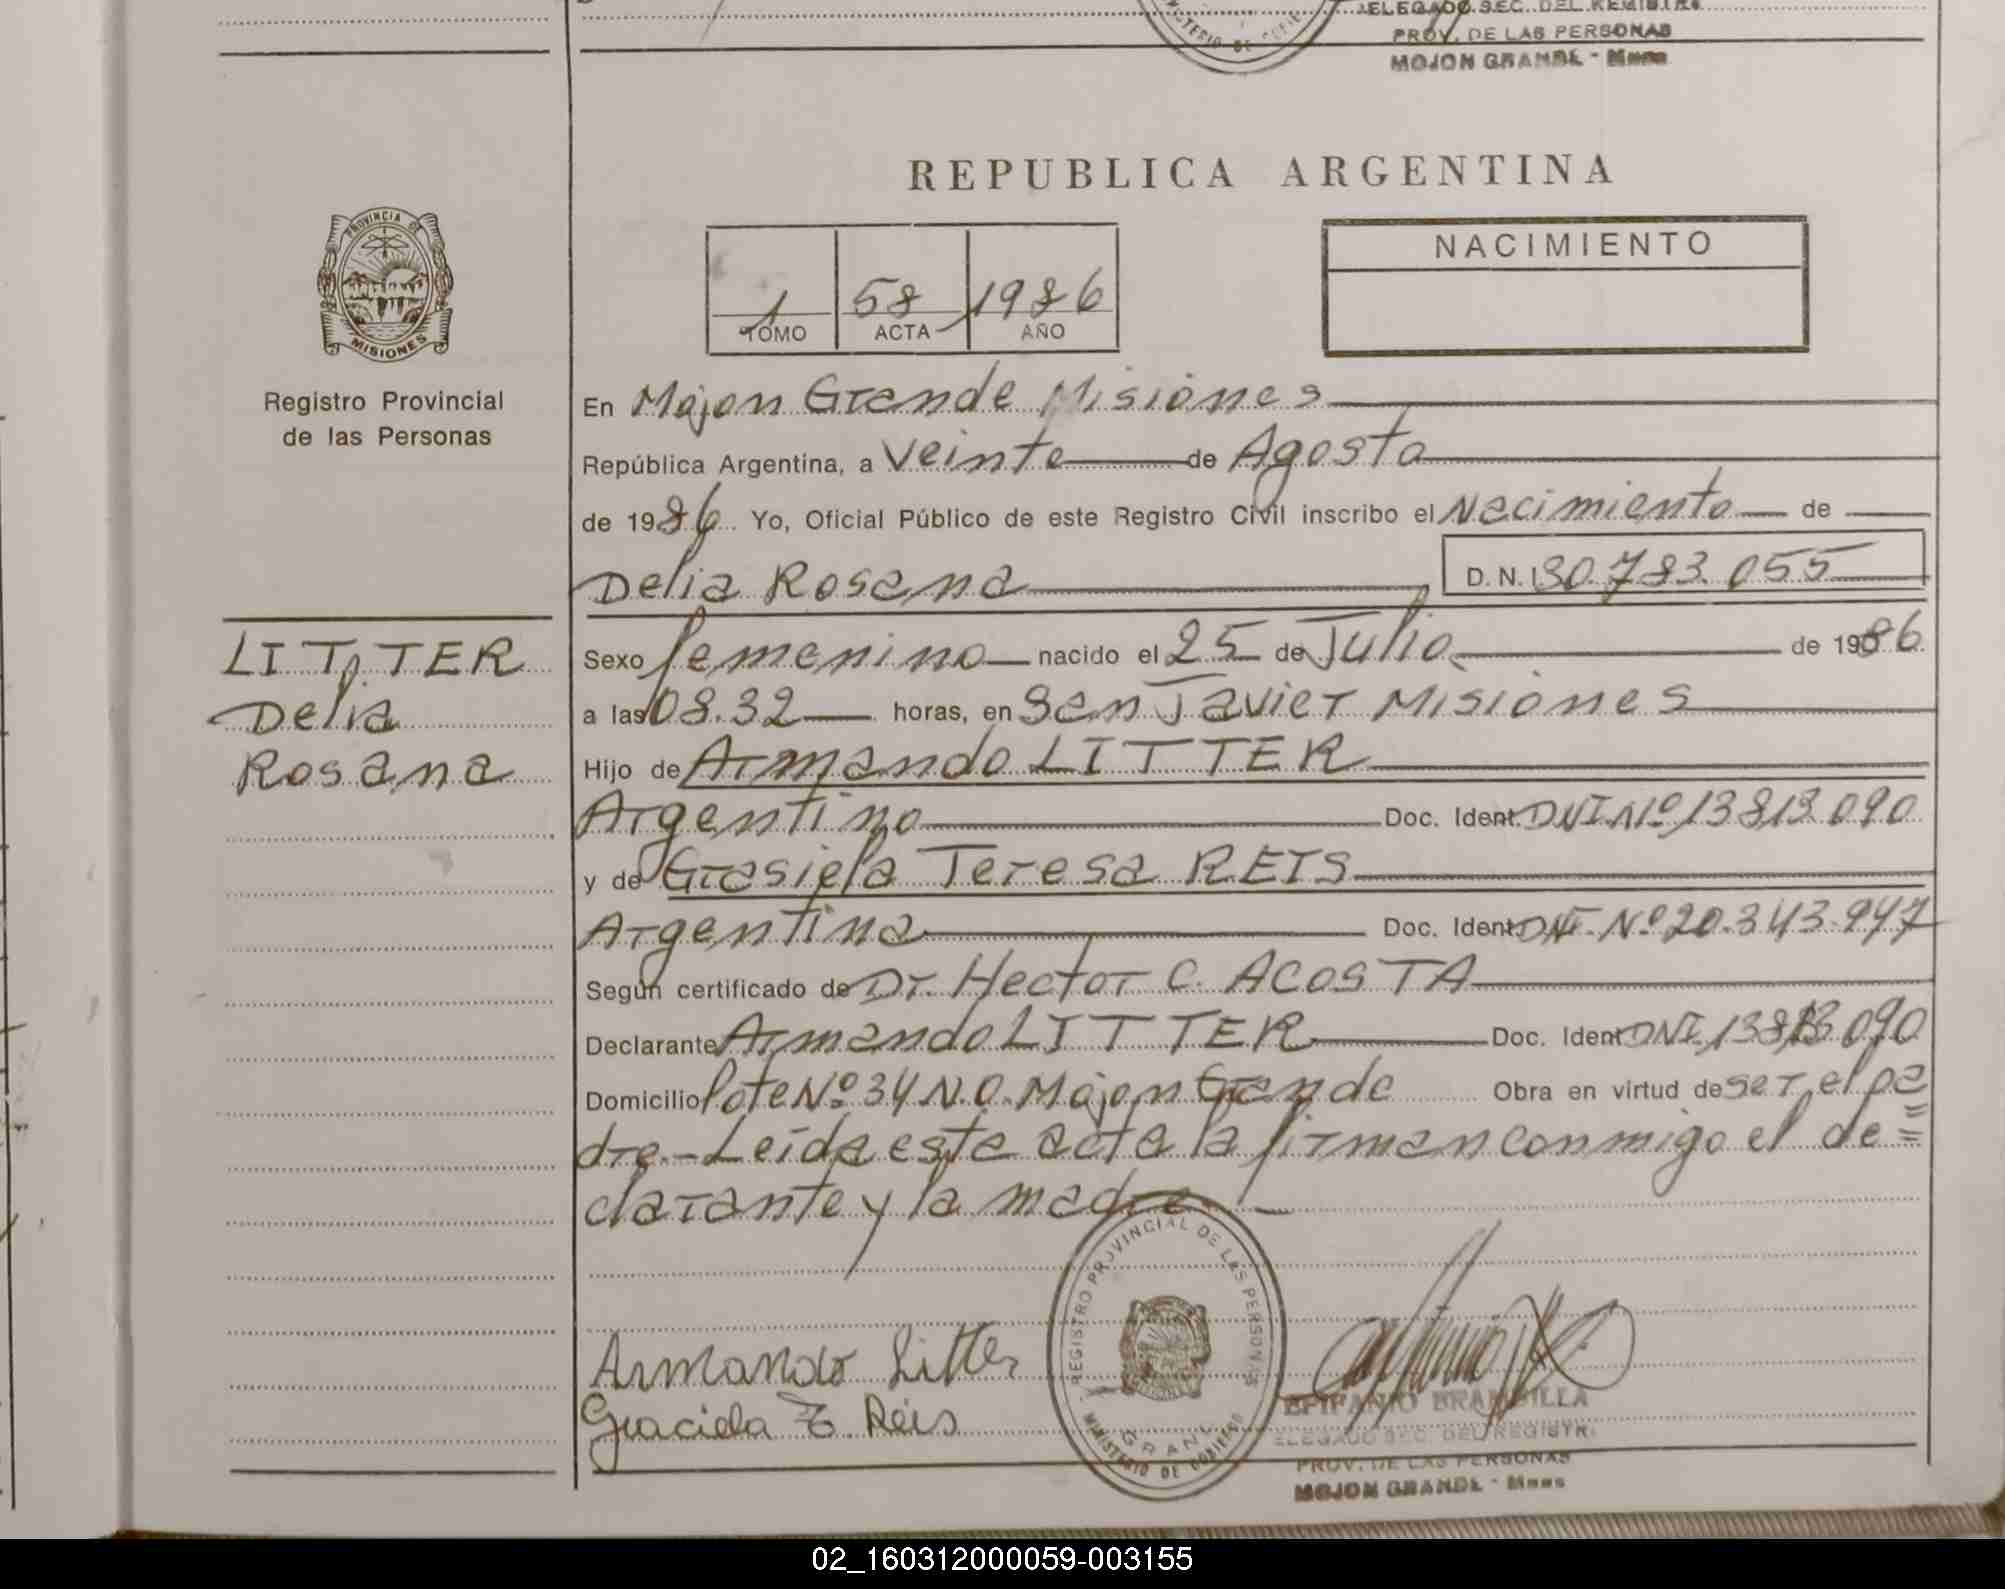 DELEGADO SEC. DEL REGISTRO
PROV. DE LAS PERSONAS
MOJON GRANDE - Mnes
REPUBLICA ARGENTINA
PROVINCIA DE
MISIONES
Registro Provincial
de las Personas
1 58 1986
TOMO ACTA AÑO
NACIMIENTO
En Mojon Grande Misiones
República Argentina, a Veinte de Agosto
de 1986 Yo, Oficial Público de este Registro Civil inscribo el Nacimiento de
Delia Rosana D.N.I. 30.783.055
LITTER
Delia
Rosana
Sexo femenino nacido el 25 de Julio de 1986
a las 08.32 horas, en San Javier Misiones
Hijo de Armando LITTER
Argentino Doc. Ident. DNI Nº 13813.090
y de Grasiela Teresa REIS
Argentina Doc. Ident. DNI. Nº 20.343.947
Según certificado de Dr. Hector C. ACOSTA
Declarante Armando LITTER Doc. Ident DNI. 13813.090
Domicilio lote Nº 34 N.O. Mojon Grande Obra en virtud de ser el pa
dre.- Leída esta acta la firman conmigo el de=
clarante y la madre. -
Armando Litter
Graciela T. Reis
REGISTRO PROVINCIAL DE LAS PERSONAS
MINISTERIO DE GOBIERNO
EPIFANIO BRAMBILLA
DELEGADO SEC. DEL REGISTR.
PROV. DE LAS PERSONAS
MOJON GRANDE - Mnes
02_160312000059-003155